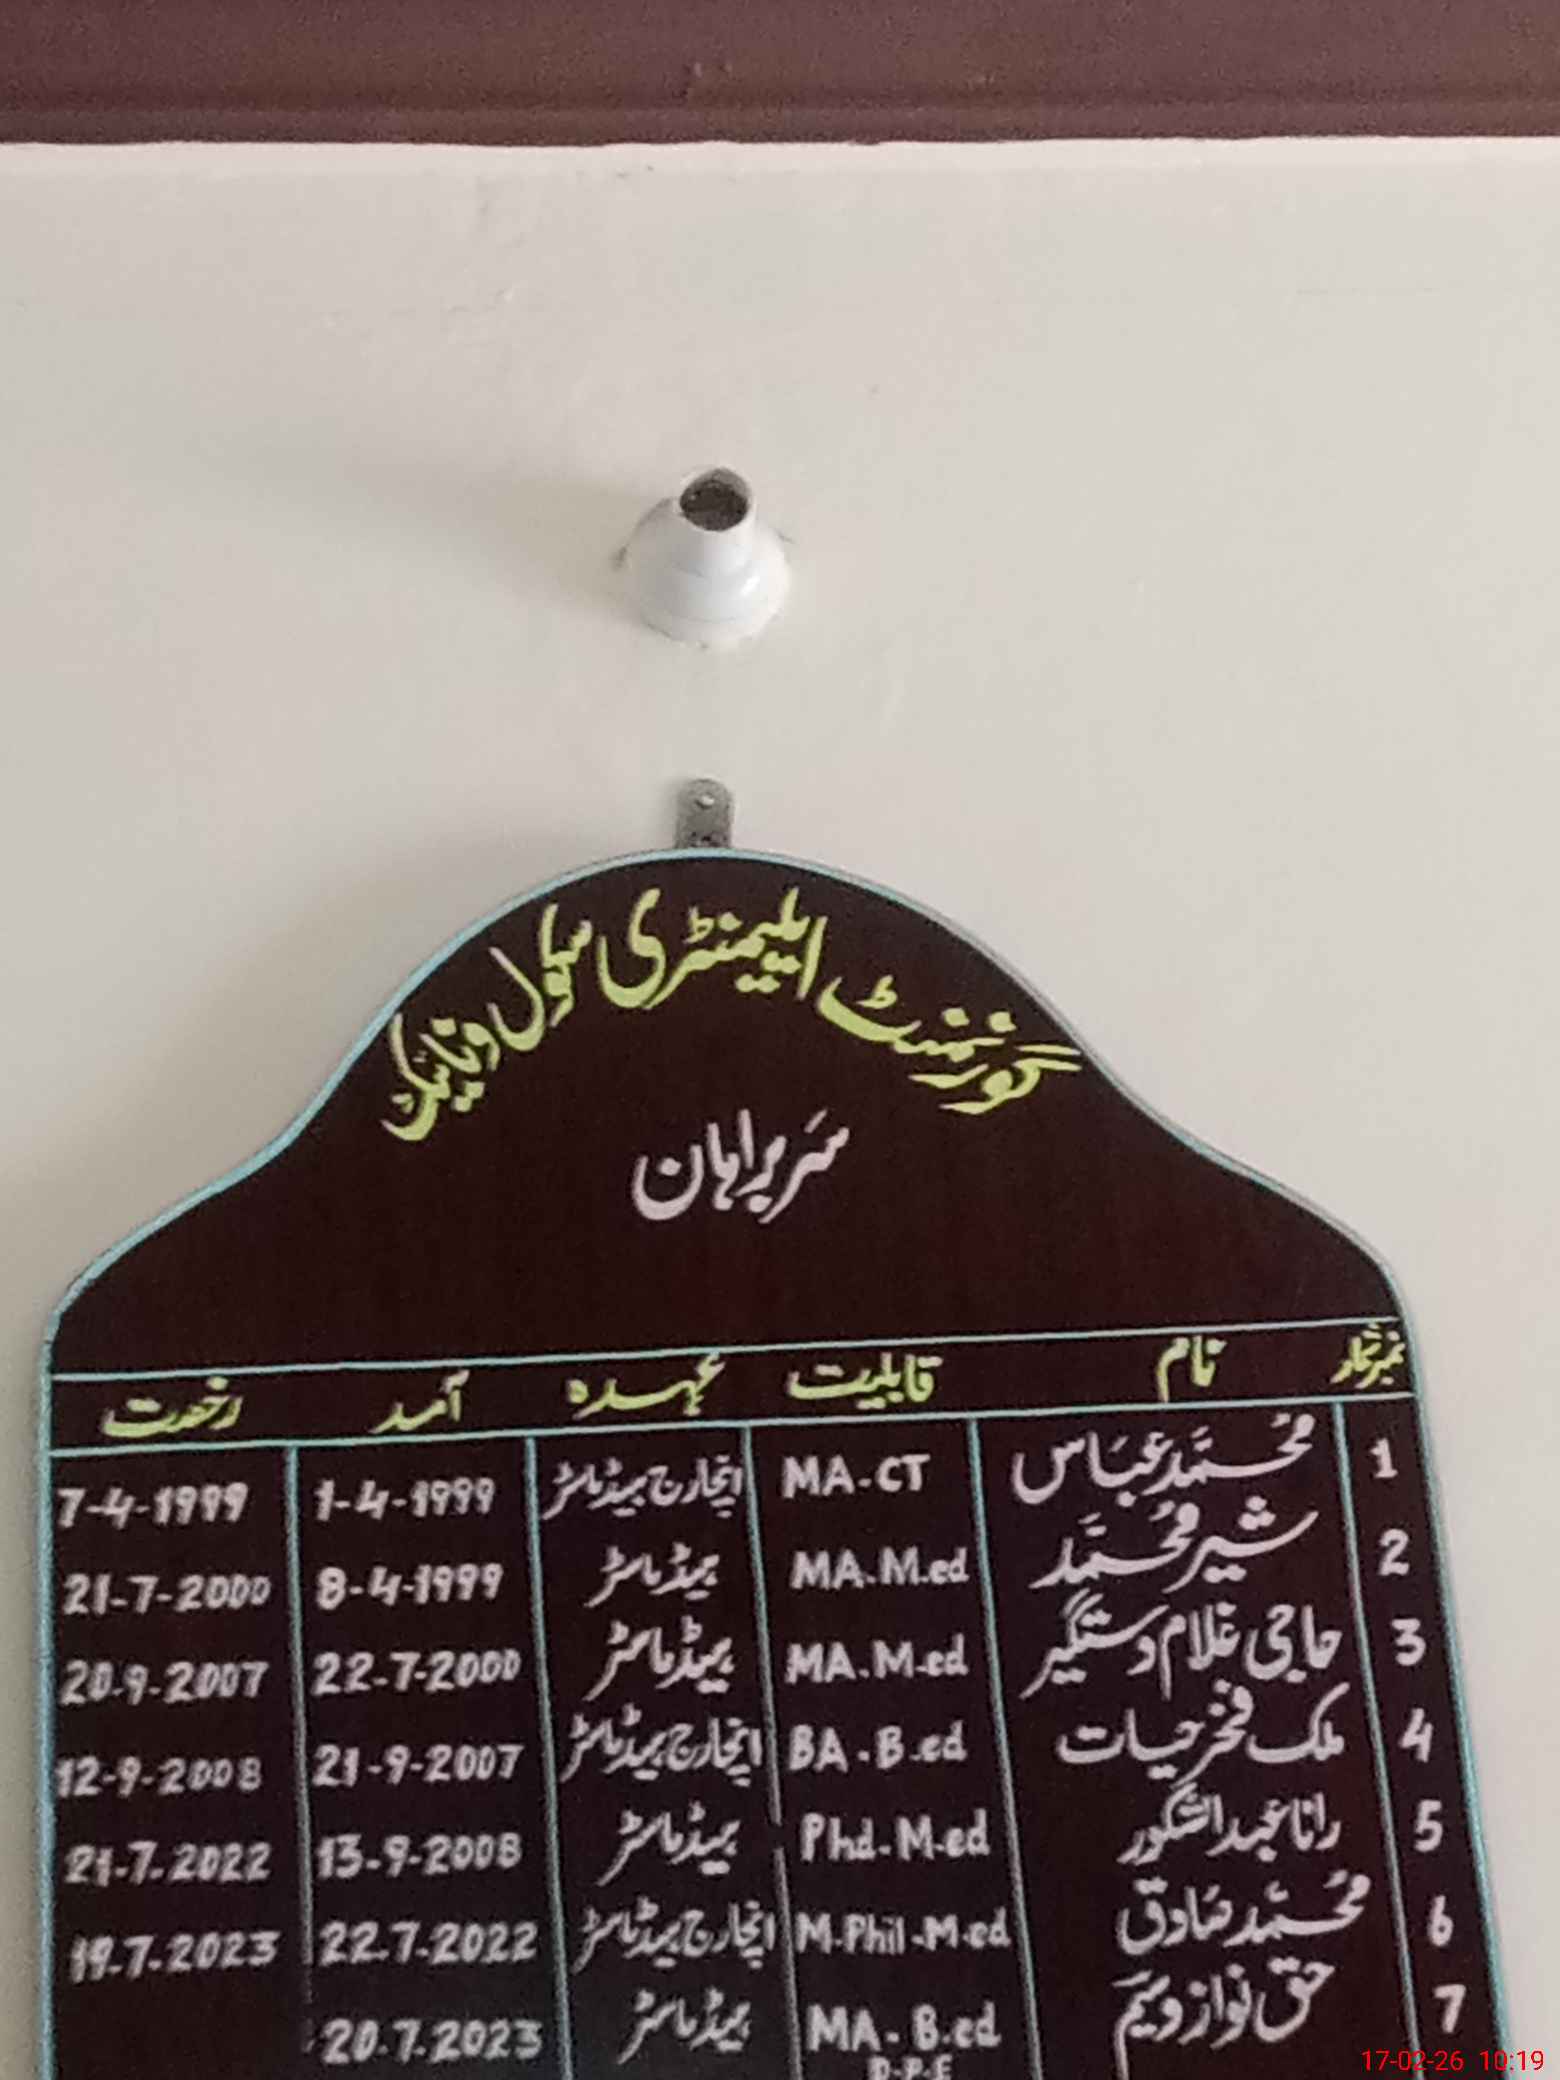 گورنمنٹ ایلیمنٹری سکول ونائیک
سربراہان
نمبرشمار نام قابلیت عہدہ آمد رخصت
1 محمد عباس MA-CT انچارج ہیڈماسٹر 1-4-1999 7-4-1999
2 شیر محمد MA.M.ed ہیڈماسٹر 8-4-1999 21-7-2000
3 حاجی غلام دستگیر MA.M.ed ہیڈماسٹر 22-7-2000 20-9-2007
4 ملک فخر حیات BA.B.ed انچارج ہیڈماسٹر 21-9-2007 12-9-2008
5 رانا عبدالشکور Phd-M.ed ہیڈماسٹر 13-9-2008 21-7-2022
6 محمد صادق M-Phil-M.ed انچارج ہیڈماسٹر 22.7-2022 19.7.2023
7 حق نواز وسیم MA-B.ed ہیڈماسٹر 20.7.2023
D-P-E
17-02-26 10:19